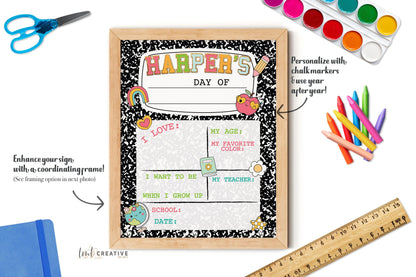 HARPER'S
DAY OF
Personalize with
chalk markers
& use year
after year!
I LOVE:
MY AGE:
MY FAVORITE
COLOR:
Enhance your sign
with a coordinating frame!
(See framing option in next photo)
I WANT TO BE
WHEN I GROW UP
MY TEACHER:
SCHOOL:
DATE:
CREATIVE